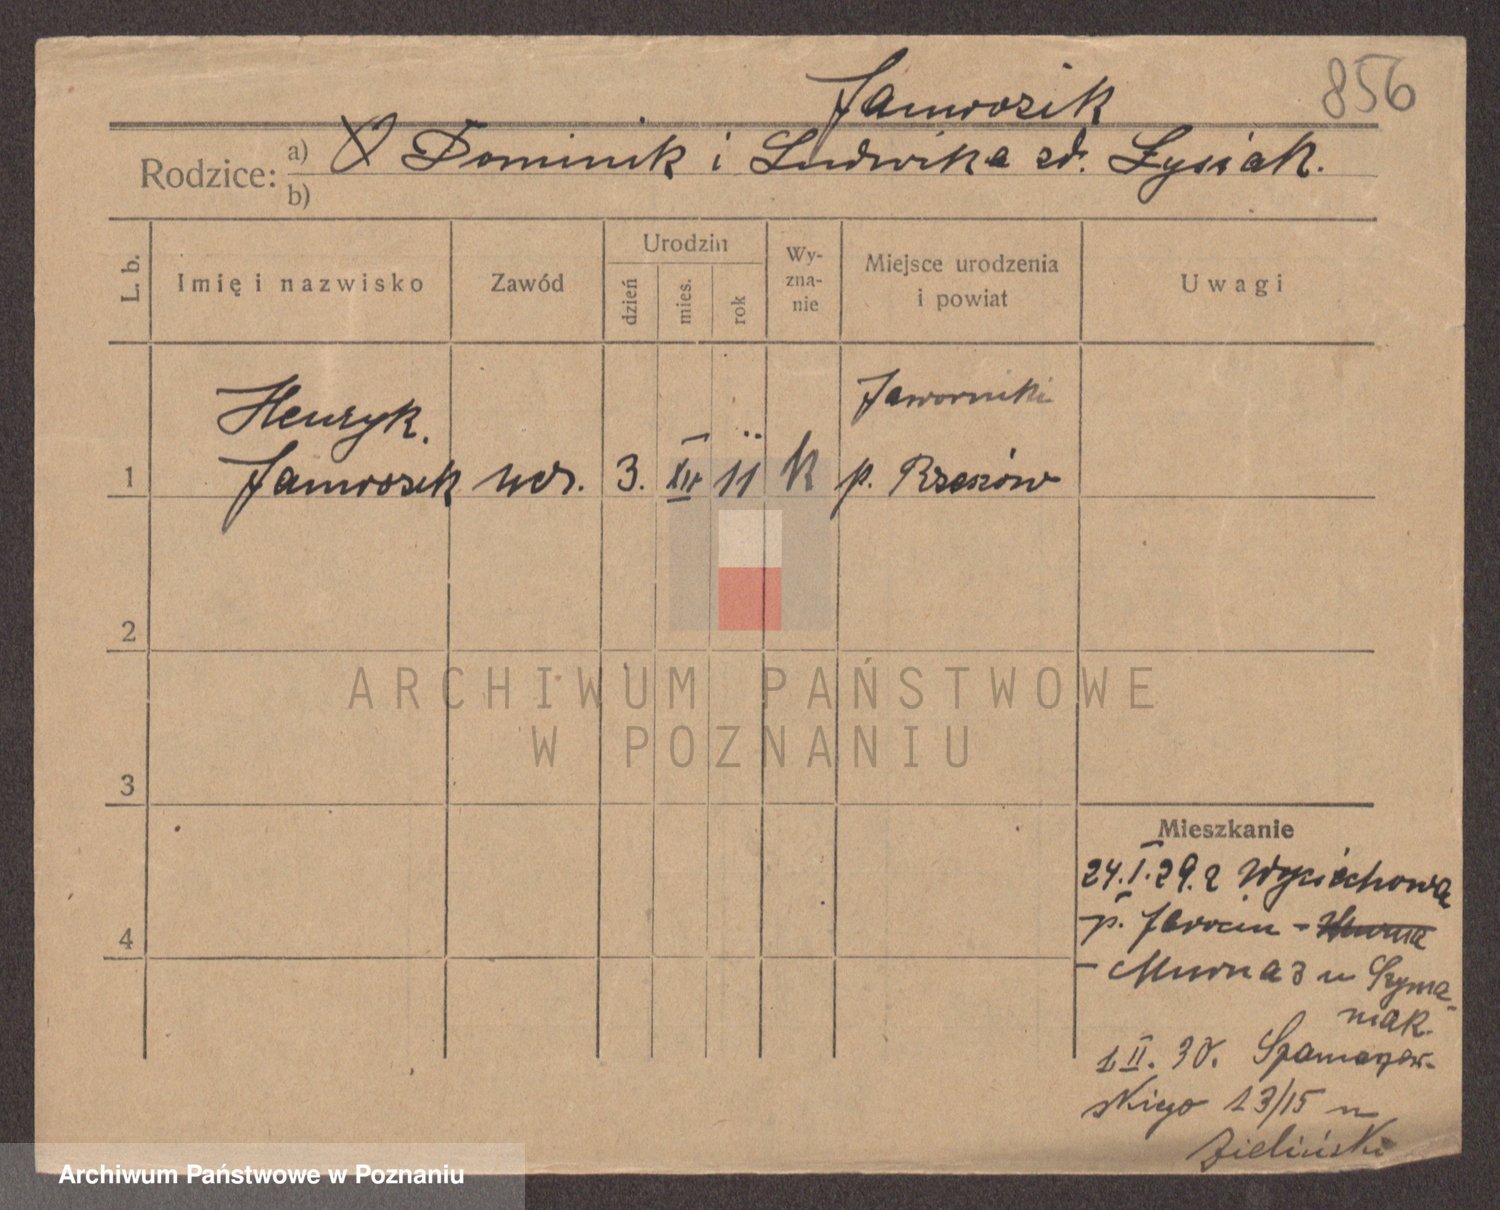 856
Jamrozik
Rodzice: a) Dominik i Ludwika zd. Łysiak.
b)
L. b. Imię i nazwisko Zawód Urodzin dzień mies. rok Wy-zna-nie Miejsce urodzenia i powiat Uwagi
Henryk. Jaworniki
1 Jamrozik ucz. 3. XII 11 k p. Rzeszów
2
ARCHIWUM PAŃSTWOWE
W POZNANIU
3
Mieszkanie
24.I.29. z Wyciechowa
p. Jarocin -
4
- Murna 3 u Szyma-
niak.
1 II. 30. Szamarzew-
skiego 13/15 u
Zieliński
Archiwum Państwowe w Poznaniu